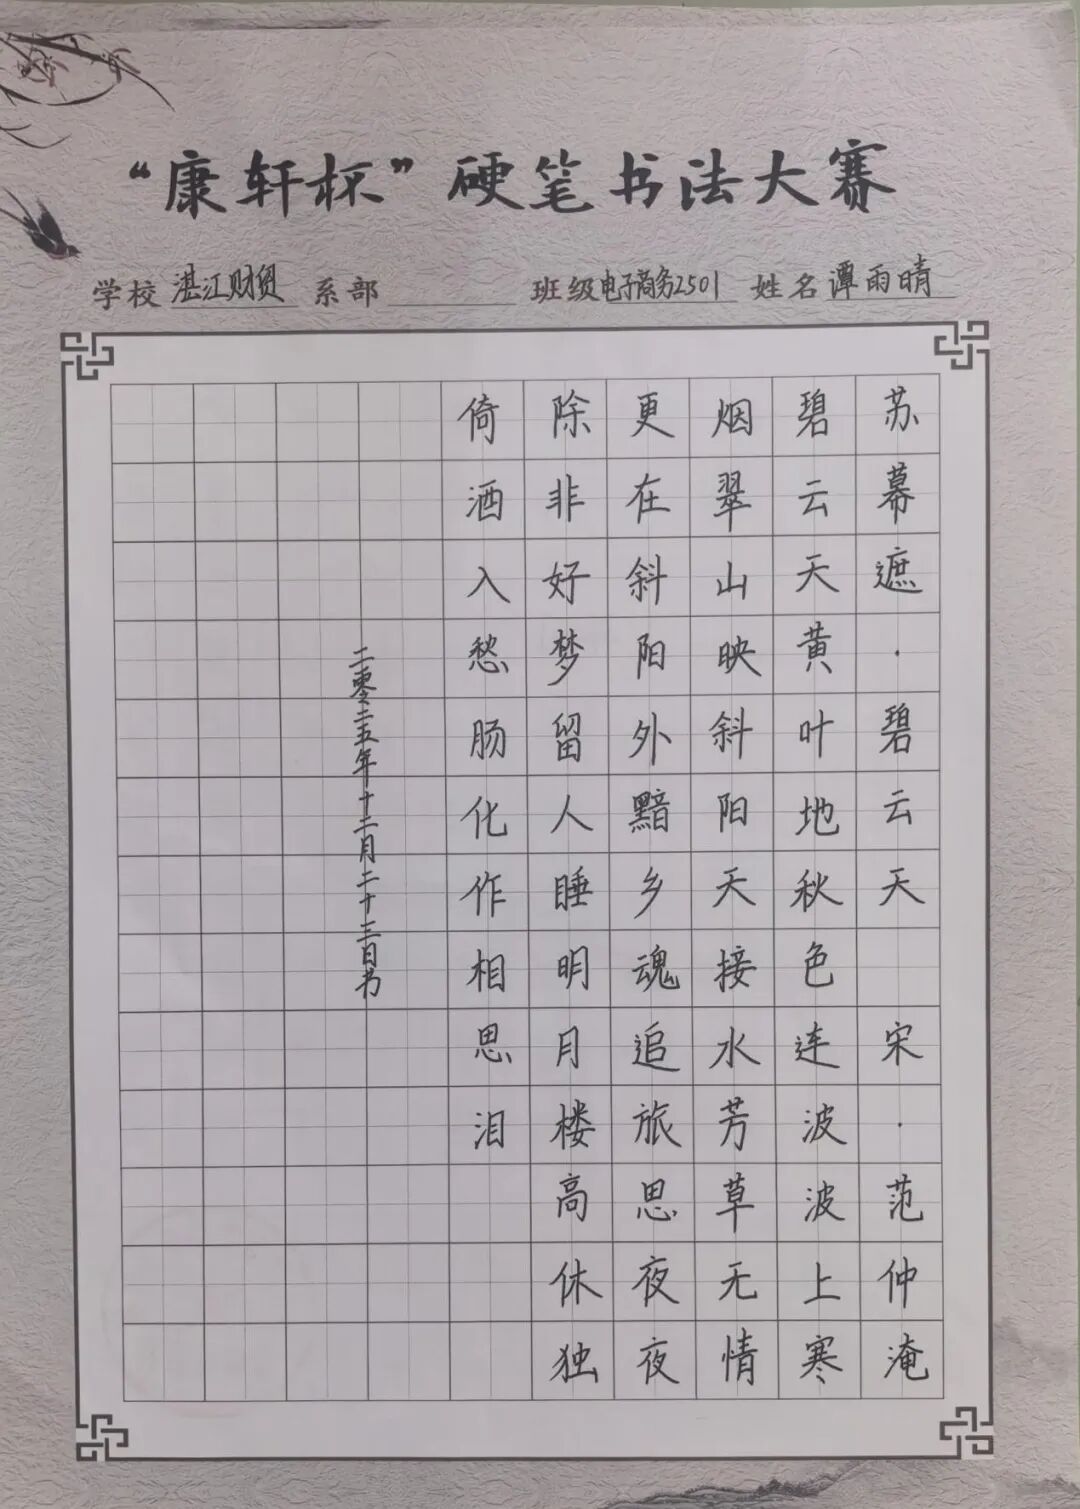 “康轩杯”硬笔书法大赛
学校 湛江财贸 系部 班级 电子商务2501 姓名 谭雨晴
苏幕遮·碧云天 宋·范仲淹
碧云天黄叶地秋色连波波上寒
烟翠山映斜阳天接水芳草无情
更在斜阳外黯乡魂追旅思夜夜
除非好梦留人睡明月楼高休独
倚酒入愁肠化作相思泪
二零二五年十二月二十三日书